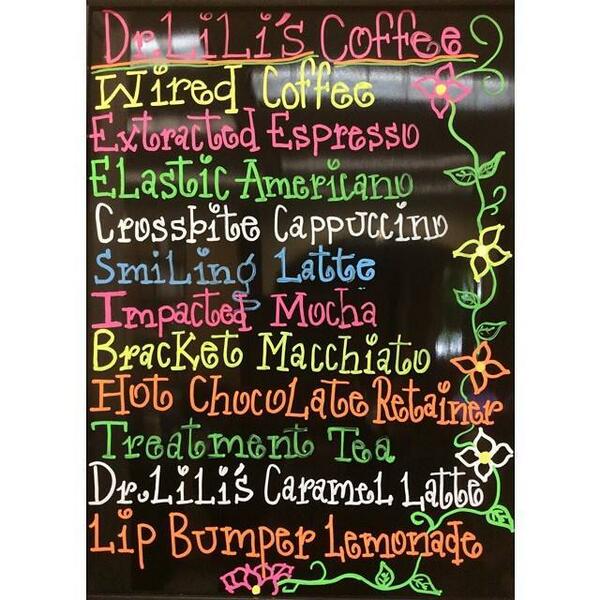 Dr. LiLi's Coffee
Wired Coffee
Extracted Espresso
Elastic Americano
Crossbite Cappuccino
Smiling Latte
Impacted Mocha
Bracket Macchiato
Hot Chocolate Retainer
Treatment Tea
Dr. LiLi's Caramel Latte
Lip Bumper Lemonade